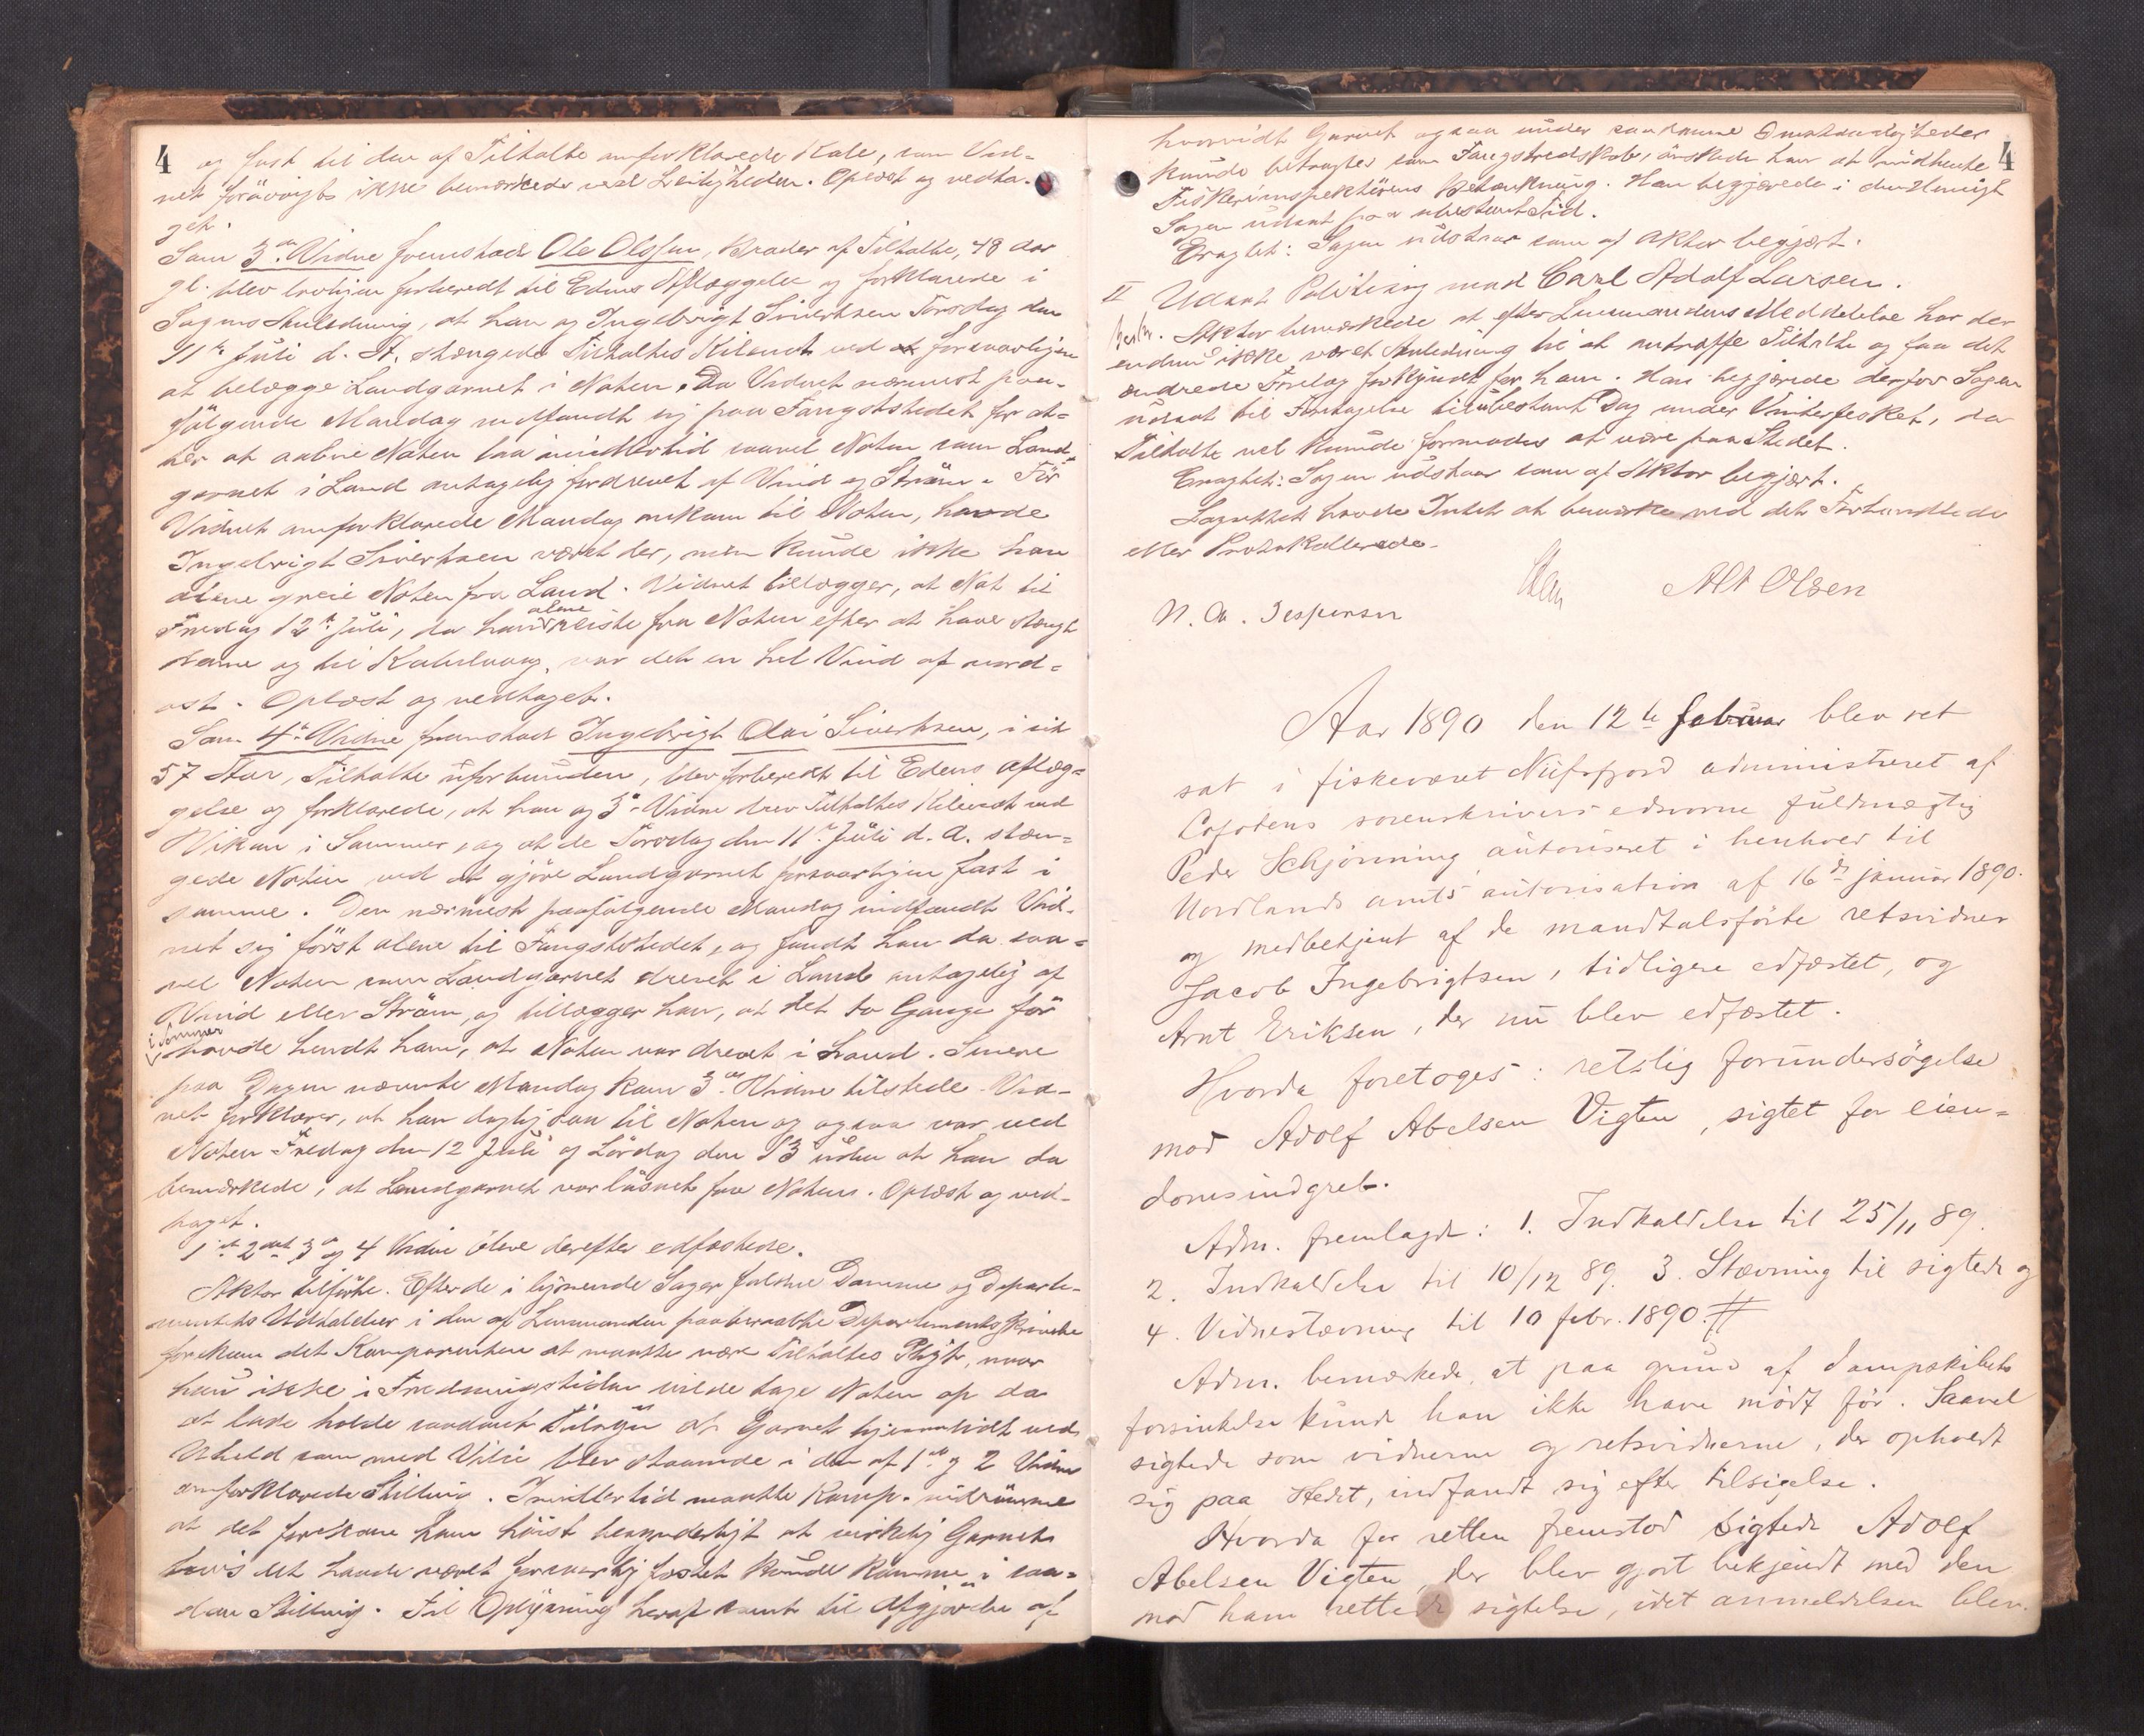 4
og fast til den af Tiltalte omforklarede Kale, som Vid-
net forövrigt ikke bemærkede ved Leiligheden. Oplæst og vedta-
get.
Som 3die Vidne fremstod Ole Olsen, Broder af Tiltalte, 48 Aar
gl. blev lovligen forberedt til Edens Aflæggelse og forklarede i
Sagens Anledning, at han og Ingebrigt Sivertsen Torsdag den
11te Juli d. A. stængede Tiltaltes Kilenot ved at forsvarligen
at belægge Landgarnet i Noten. Da Vidnet nærmest paa-
fölgende Mandag indfandt sig paa Fangststedet for at-
ter at aabne Noten laa imidlertid saavel Noten som Land-
garnet i Land antagelig fordrevet af Vind og Ström. För
Vidnet omforklarede Mandag ankom til Noten, havde
Ingebrigt Sivertsen været der, men kunde ikke han
alene greie Noten fra Land. Vidnet tillægger, at Nat til
Fredag 12te Juli, da han alene reiste fra Noten efter at have stængt
denne og til Kabelvaag, var det en hel Vind af nord-
ost. Oplæst og vedtaget.
Som 4de Vidne fremstod Ingebrigt Olai Sivertsen, i sit
57 Aar, Tiltalte uforbunden, blev forberedt til Edens aflæg-
gelse og forklarede, at han og 3die Vidne drev Tiltaltes Kilenot ved
Vikan i Sommer, og at de Torsdag den 11te Juli d. A. stæn-
gede Noten ved at gjöre Landgarnet forsvarligen fast i
samme. Den nærmest paafölgende Mandag indfandt Vid-
net sig först alene til Fangststedet, og fandt han da saa-
vel Noten som Landgarnet drevet i Land antagelig af
Vind eller Ström, og tillægger han, at det to Gange för
i Sommer
havde hendt ham, at Noten var drevet i Land. Senere
paa Dagen nævnte Mandag kom 3die Vidne tilstede. Vid-
net forklarer, at han daglig saa til Noten og ogsaa var ved
Noten Fredag den 12 Juli og Lördag den 13 uden at han da
bemærkede, at Landgarnet var lösnet fra Noten. Oplæst og ved-
taget.
1ste 2det 3die og 4 Vidne bleve derefter edfæstede.
Aktor tilförte. Efter de i lignende Sager faldne Domme og Departe-
mentets Udtalelser i den af Lensmanden paaberaabte Departementsskrivelse
forekom det Komparenten at maatte være Tiltaltes Pligt, naar
han ikke i Fredningstiden vilde tage Noten op da
at lade holde saadant Tilsyn at Garnet hjemholdt ved
Uheld som med Vilie blev staaende i den af 1ste og 2 Vidne
omforklarede Stilling. Imidlertid maatte Komp. indrömme
at det forekom ham höist besynderligt at virkelig Garnet
hvis det havde været forsvarlig fæstet kunde komme i saa-
dan Stilling. Til Oplysning heraf samt til Afgjörelse af
4
hvorvidt Garnet ogsaa under saadanne Omstændigheder
kunde betragtes som Fangstredskab, önskede han at indhente
Fiskeriinspektörens Betænkning. Han begjærede i den Henseigt
Sagen udsat paa ubestemt Tid.
Eragtet: Sagen udstaar som af Aktor begjært.
II Udsat Politisag mod Carl Adolf Larsen.
Aktor bemærkede at efter Lensmandens Meddelelse har der
endnu ikke været Anledning til at antræffe Tiltalte og faa det
ændrede Forelæg forkyndt for ham. Han begjærede derfor Sagen
udsat til Foretagelse til ubestemt Dag under Vinterfisket, da
Tiltalte vel kunde formodes at være paa Stedet.
Eragtet: Sagen udstaar som af Aktor begjært.
Lagrettet havde Intet at bemærke ved det Forhandlede
eller Protokollerede.
Alt Olsen
N. Chr. Jespersen
Aar 1890 den 12te februar blev ret
sat i fiskeværet Nufsfjord administreret af
Lofotens sorenskrivers edsvorne fuldmægtig
Peder Schjönning autoriseret i henhold til
Nordlands amts autorisation af 16de januar 1890.
og medbetjent af de mandtalsförte retsvidner
Jacob Ingebrigtsen, tidligere edfæstet, og
Arnt Eriksen, der nu blev edfæstet.
Hvorda foretoges: retslig forundersögelse
mod Adolf Abelsen Vigten, sigtet for eien-
domsindgreb.
Adm. fremlagde: 1. Indkaldelse til 25/11 89.
2. Indkaldelse til 10/12 89. 3. Stævning til sigtede og
4. Vidnestævning til 10 febr. 1890.
Adm. bemærkede, at paa grund af dampskibets
forsinkelse kunde han ikke have mödt för. Saavel
sigtede som vidnerne og retsvidnerne, der opholdt
sig paa Stedet, indfandt sig efter tilsigelse.
Hvorda for retten fremstod sigtede Adolf
Abelsen Vigten, der blev gjort bekjendt med den
mod ham rettede sigtelse, idet anmeldelsen blev